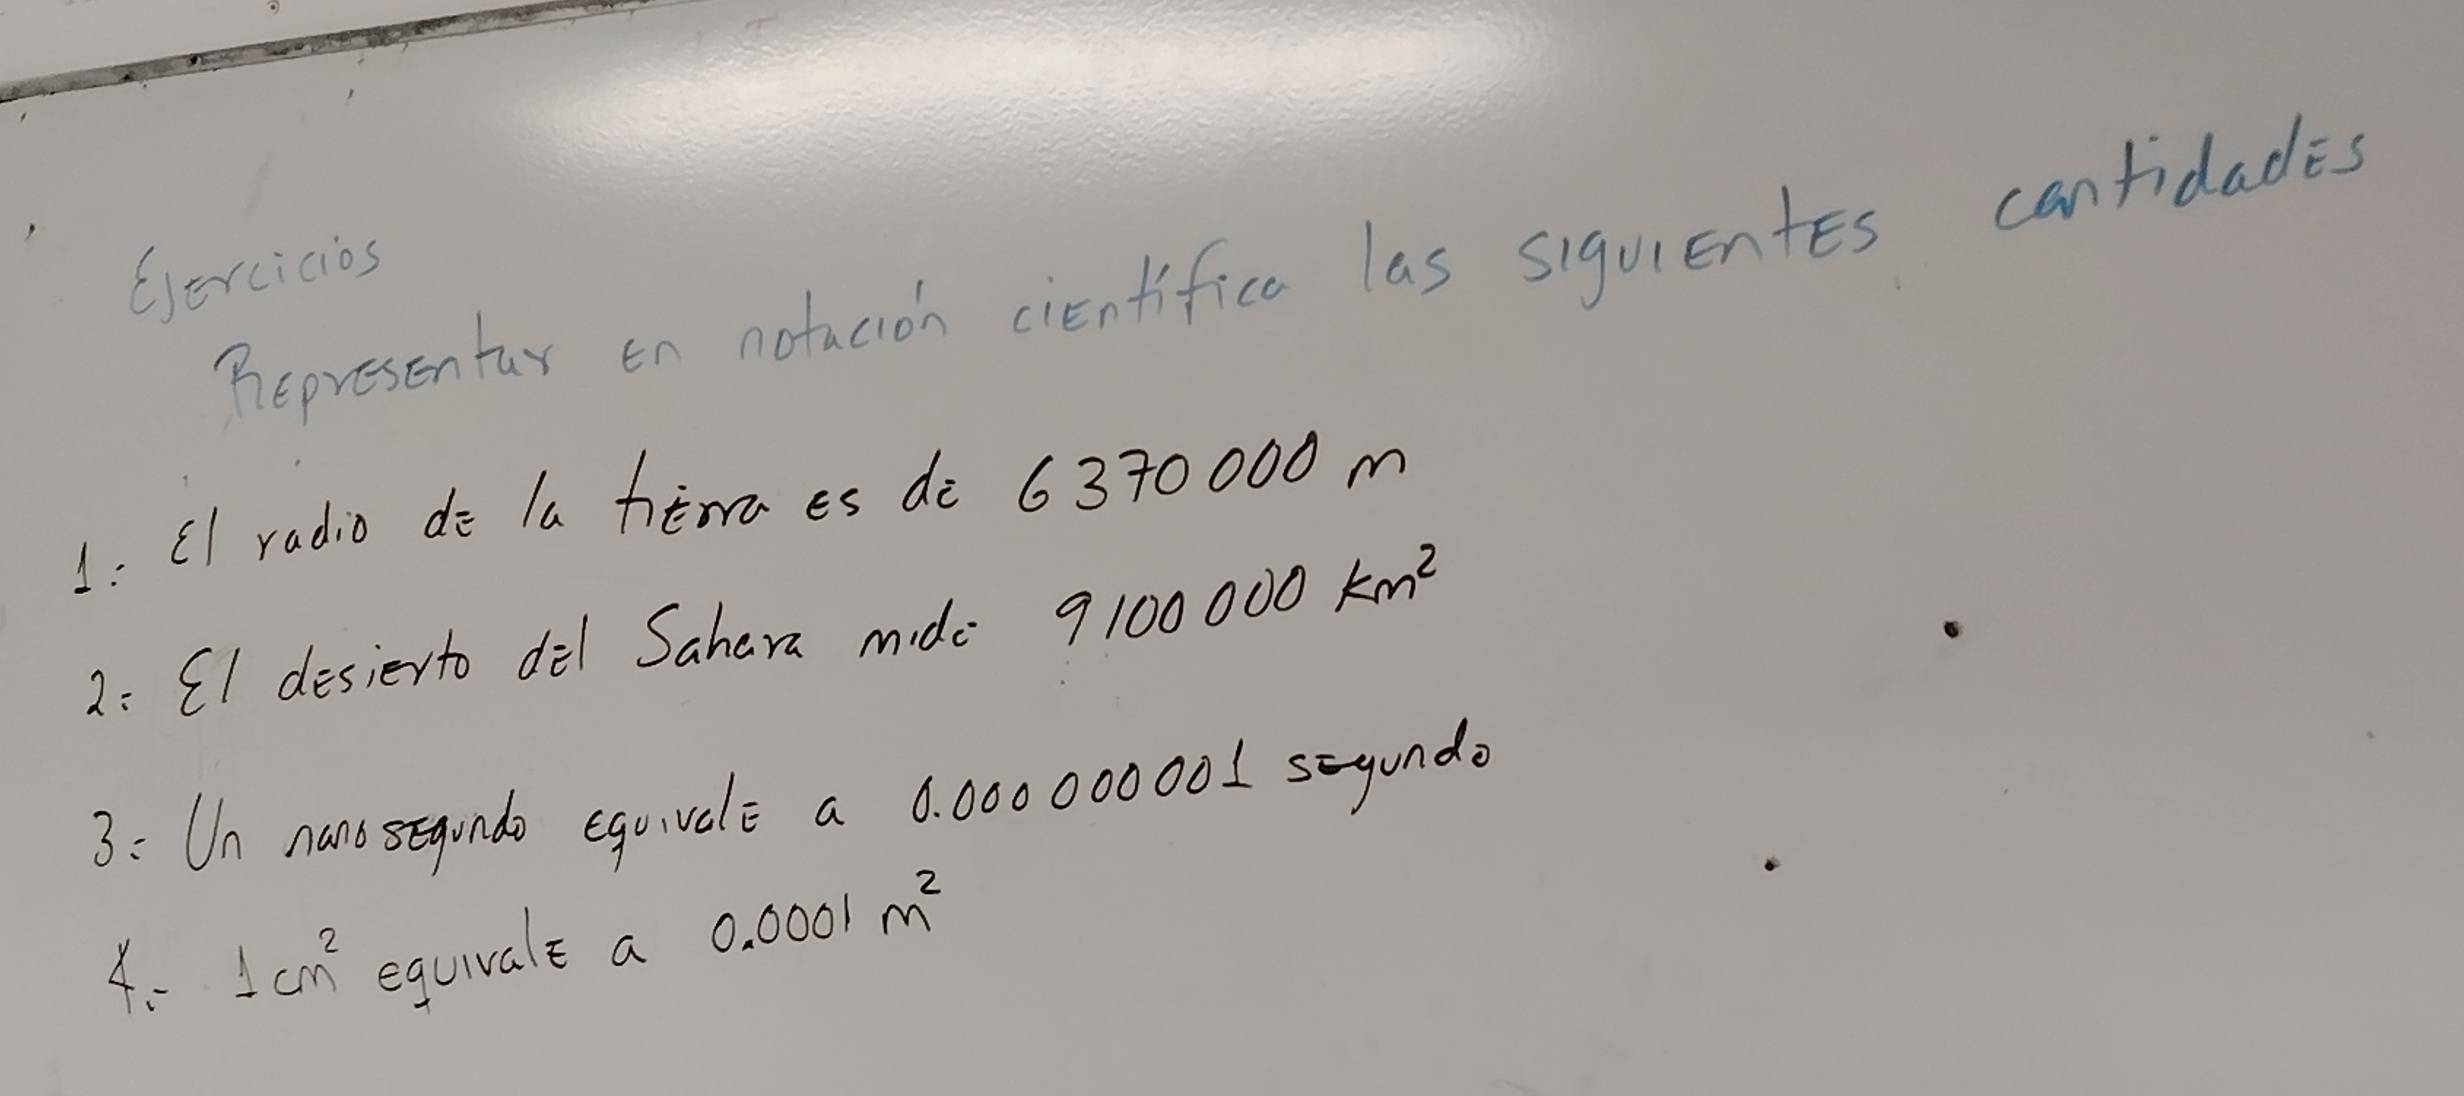 Ejercicios
Representar en notación científica las siguientes cantidades
1.- El radio de la tierra es de 6370000 m
2.- El desierto del Sahara mide 9100000 km²
3.- Un nanosegundo equivale a 0.000000001 segundo
4.- 1 cm² equivale a 0.0001 m²